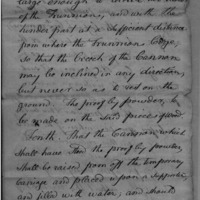 large enough to
of the Trunnions, and with the
hinder part at a Sufficient distance
from where the Trunnions lodge,
so that the Breech of the Cannon
may be inclined in any direction,
but never so as to rest on the
ground. The proof by powder, to
be made on the said piece of ground
Tenth That the Cannon which
shall have then the proof by powder,
shall be raised from off the temporary
Carriage and placed upon a Support,
and filled with water, and should